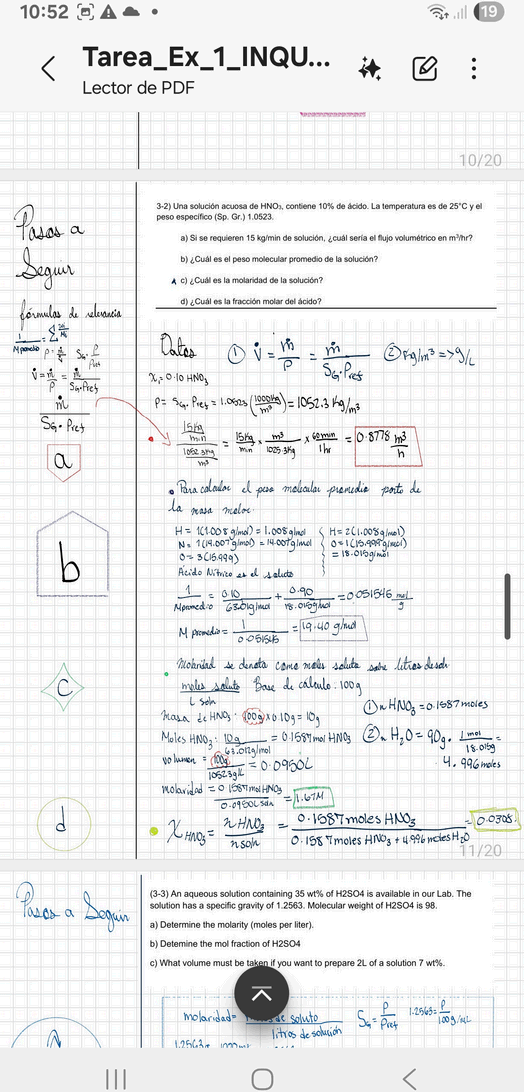 10:52
19
Tarea_Ex_1_INQU...
Lector de PDF
10/20
Pasos a
Seguir
fórmulas de relevancia
a
b
c
d
3-2) Una solución acuosa de HNO₃, contiene 10% de ácido. La temperatura es de 25°C y el
peso específico (Sp. Gr.) 1.0523.
a) Si se requieren 15 kg/min de solución, ¿cuál sería el flujo volumétrico en m³/hr?
b) ¿Cuál es el peso molecular promedio de la solución?
c) ¿Cuál es la molaridad de la solución?
d) ¿Cuál es la fracción molar del ácido?
Datos ① V̇ = ṁ/ρ = ṁ/(SG·Pref) ② kg/m³ => g/L
x₁ = 0.10 HNO₃
ρ = SG·Pref = 1.0523 (1000kg/m³) = 1052.3 kg/m³
15kg/min / 1052.3kg/m³ = 15kg/min × m³/1025.3kg × 60min/1hr = 0.8778 m³/h
• Para calcular el peso molecular promedio parto de
la masa molar
H = 1(1.008 g/mol) = 1.008 g/mol { H = 2(1.008 g/mol)
N = 1(14.007 g/mol) = 14.007 g/mol { O = 1(15.999 g/mol)
O = 3(15.999) = 18.015 g/mol
Ácido Nítrico es el soluto
1/Mpromedio = 0.10/63.01g/mol + 0.90/18.015g/mol = 0.051546 mol/g
M promedio = 1/0.051545 = 19.40 g/mol
• Molaridad se denota como moles soluto sobre litros de soln
moles soluto / L soln Base de cálculo: 100g
masa de HNO₃: 100g × 0.10g = 10g ① n HNO₃ = 0.1587 moles
Moles HNO₃: 10g/63.012g/mol = 0.1587 mol HNO₃ ② n H₂O = 90g · 1mol/18.015g = 4.996 moles
volumen = 100g/1052.3g/L = 0.0950L
molaridad = 0.1587 mol HNO₃/0.0950L soln = 1.67M
X HNO₃ = n HNO₃/n soln = 0.1587 moles HNO₃/0.1587 moles HNO₃ + 4.996 moles H₂O = 0.0308
11/20
Pasos a Seguir
(3-3) An aqueous solution containing 35 wt% of H2SO4 is available in our Lab. The
solution has a specific gravity of 1.2563. Molecular weight of H2SO4 is 98.
a) Determine the molarity (moles per liter).
b) Detemine the mol fraction of H2SO4
c) What volume must be taken if you want to prepare 2L of a solution 7 wt%.
molaridad = de soluto / litros de solución SG = ρ/Pref 1.2563 = ρ